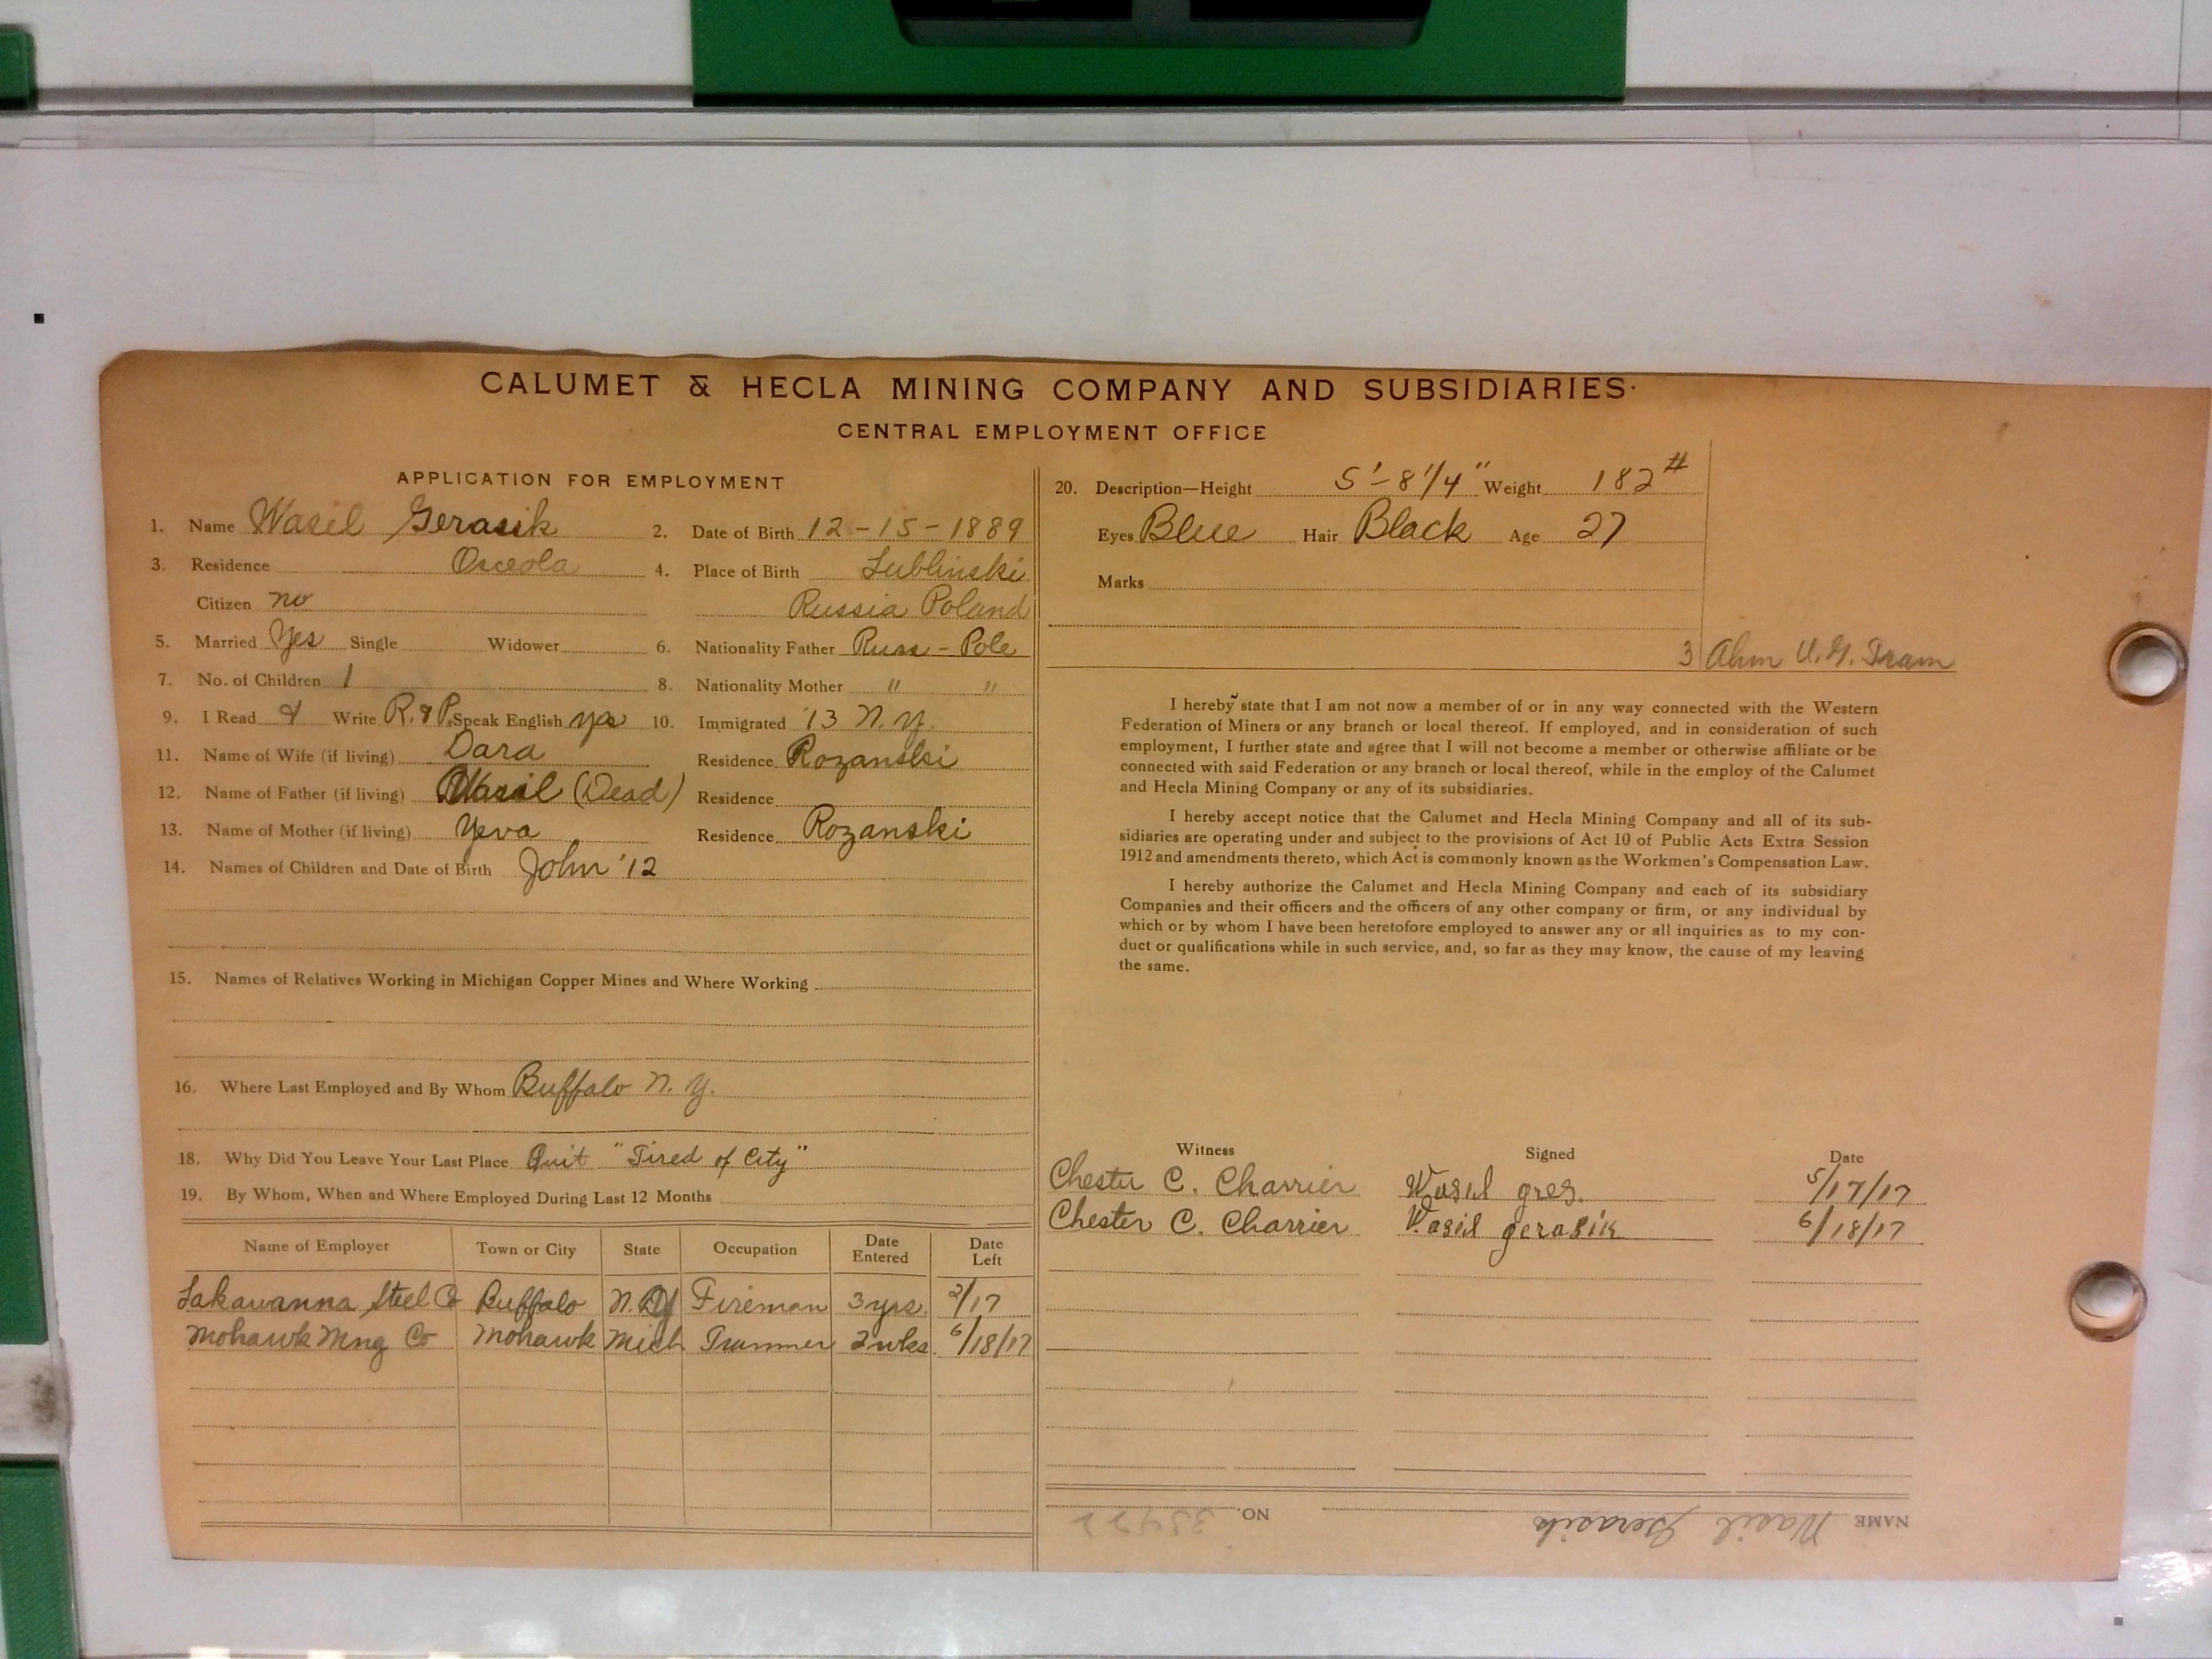 CALUMET & HECLA MINING COMPANY AND SUBSIDIARIES.
CENTRAL EMPLOYMENT OFFICE
APPLICATION FOR EMPLOYMENT
1. Name Wasil Gerasik 2. Date of Birth 12-15-1889
3. Residence Osceola 4. Place of Birth Lublinski
Citizen no Russia Poland
5. Married Yes Single Widower 6. Nationality Father Russ-Pole
7. No. of Children 1 8. Nationality Mother " "
9. I Read & Write R. & P. Speak English yes 10. Immigrated '13 N.Y.
11. Name of Wife (if living) Dara Residence Rozanski
12. Name of Father (if living) Wasil (Dead) Residence
13. Name of Mother (if living) Yeva Residence Rozanski
14. Names of Children and Date of Birth John '12
15. Names of Relatives Working in Michigan Copper Mines and Where Working
16. Where Last Employed and By Whom Buffalo N. Y.
18. Why Did You Leave Your Last Place Quit "Tired of City"
19. By Whom, When and Where Employed During Last 12 Months
Name of Employer Town or City State Occupation Date Entered Date Left
Lakawanna Steel Co Buffalo N.Y Fireman 3 yrs. 2/17
Mohawk Mng Co Mohawk Mich Trammer 2 wks. 6/18/17
20. Description—Height 5'-8 1/4" Weight 182#
Eyes Blue Hair Black Age 27
Marks
3 Ahm U.G. Tram
I hereby state that I am not now a member of or in any way connected with the Western
Federation of Miners or any branch or local thereof. If employed, and in consideration of such
employment, I further state and agree that I will not become a member or otherwise affiliate or be
connected with said Federation or any branch or local thereof, while in the employ of the Calumet
and Hecla Mining Company or any of its subsidiaries.
I hereby accept notice that the Calumet and Hecla Mining Company and all of its sub-
sidiaries are operating under and subject to the provisions of Act 10 of Public Acts Extra Session
1912 and amendments thereto, which Act is commonly known as the Workmen's Compensation Law.
I hereby authorize the Calumet and Hecla Mining Company and each of its subsidiary
Companies and their officers and the officers of any other company or firm, or any individual by
which or by whom I have been heretofore employed to answer any or all inquiries as to my con-
duct or qualifications while in such service, and, so far as they may know, the cause of my leaving
the same.
Witness Signed Date
Chester C. Charrier Wasil greg. 5/17/17
Chester C. Charrier Vasil gerasik 6/18/17
NAME Wasil Gerasik NO. 35422